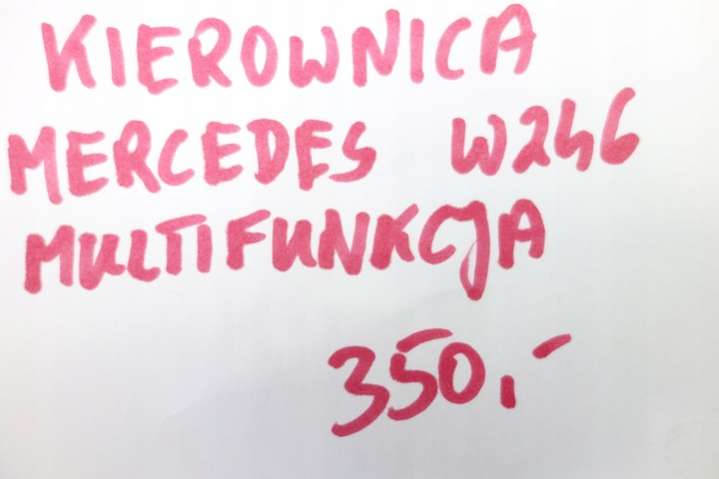 KIEROWNICA
MERCEDES W246
MULTIFUNKCJA
350,-